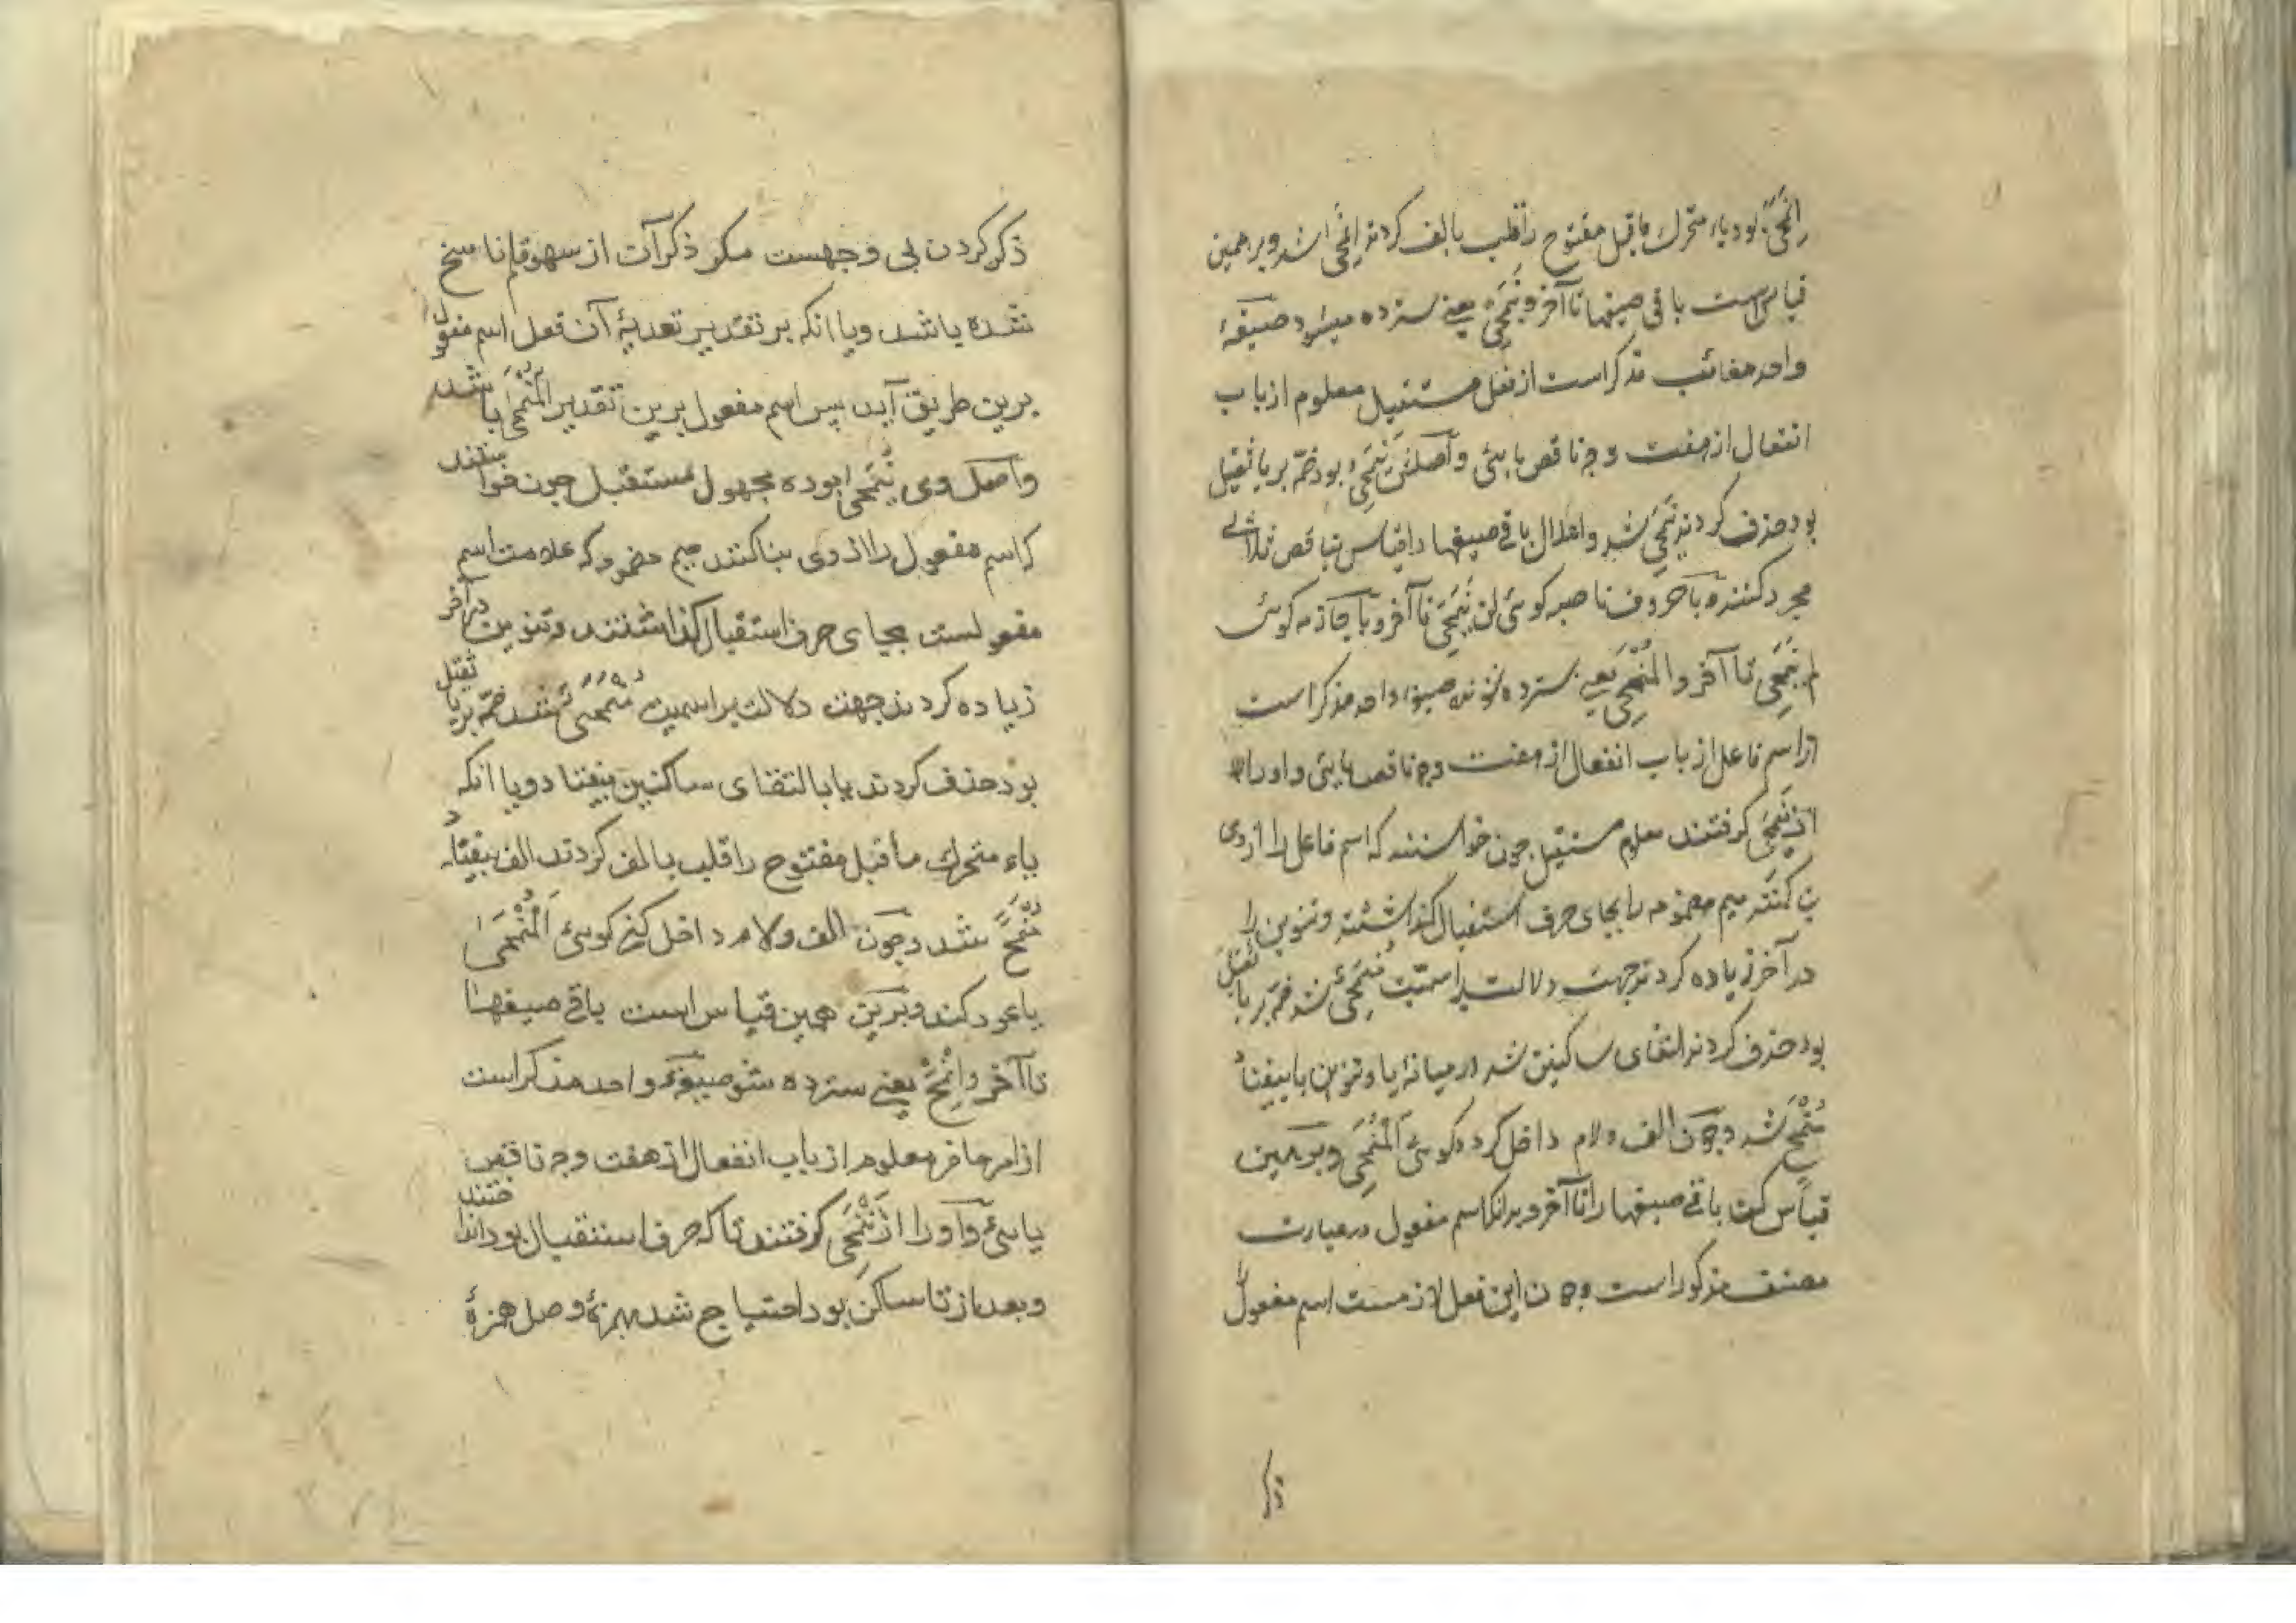 اِنْمَحَیَ بود یاء متحرك ماقبل مفتوح را قلب بالف کردند اِنْمَحیٰ شد و بر همین
قیاس است باقی صیغها تا آخر و یَنْمَحِی یعنے سترده میشود صیغهٔ
واحد مغائب مذکر است از فعل مستقبل معلوم از باب
انفعال از هفت وجه ناقص یائی و اصلش یَنْمَحِیُ بود ضمّه بر یا ثقیل
بود حذف کردند یَنْمَحِی شد و اعلال باقے صیغها را قیاس بناقص ثلاثی
مجرد کنند و با حروف ناصبه کوئی لن یَنْمَحِیَ تا آخر و با جازمه کوئی
لم یَنْمَحِ تا آخر و المُنْمَحِی یعنے سترده شونده صیغهٔ واحد مذکر است
از اسم فاعل از باب انفعال از هفت وجه ناقص یائی و او را
از یَنْمَحِی کرفتند معلوم مستقبل چون خواستند که اسم فاعل را از وی
بنا کنند میم مضمومه را بجای حرف استقبال کذاشتند و تنوین را
در آخر زیاده کردند جهت دلالت بر اسمیّت مُنْمَحِیٌ شد ضمّه بر یا ثقیل
بود حذف کردند التقای ساکنین شد در میانهٔ یا و تنوین یا بیفتاد
مُنْمَحٍ شد و چون الف و لام داخل کرده کوئی اَلْمُنْمَحِی و بر همین
قیاس کن باقے صیغها را تا آخر و بدانکه اسم مفعول در عبارت
مصنف مذکور است و چون این فعل لازمست اسم مفعول را
ذکر
ذکر کردن بی وجهست مکر ذکر آن از سهو قلم ناسخ
شده باشد و یا انکه بر تقدیر تعدیهٔ آن فعل اسم مفعول
برین طریق آید پس اسم مفعول برین تقدیر المُنْمَحیٰ باشد
و اصل وی یُنْمَحیٰ بوده مجهول مستقبل چون خواستند
که اسم مفعول را از وی بنا کنند میم مضموم که علامت اسم
مفعولست بجای حرف استقبال کذاشتند و تنوین در آخر
زیاده کردند جهت دلالت بر اسمیت مُنْمَحَیٌ شد ضمّه بر یا ثقیل
بود حذف کردند یا بالتقای ساکنین بیفتاد و یا انکه
یاء متحرك ماقبل مفتوح را قلب بالف کردند الف بیفتاد
مُنْمَحً شد و چون الف و لام داخل کنی کوئی اَلْمُنْمَحیٰ
یا عود کند و برین همین قیاس است باقے صیغها
تا آخر و اِنْمَحِ یعنے سترده شو صیغهٔ واحد مذکر است
از امر حاضر معلوم از باب انفعال از هفت وجه ناقص
یائی و او را از تَنْمَحِی کرفتند تا که حرف استقبال بود انداختند
و بعد از تا ساکن بود احتیاج شد بهمزهٔ وصل همزهٔ